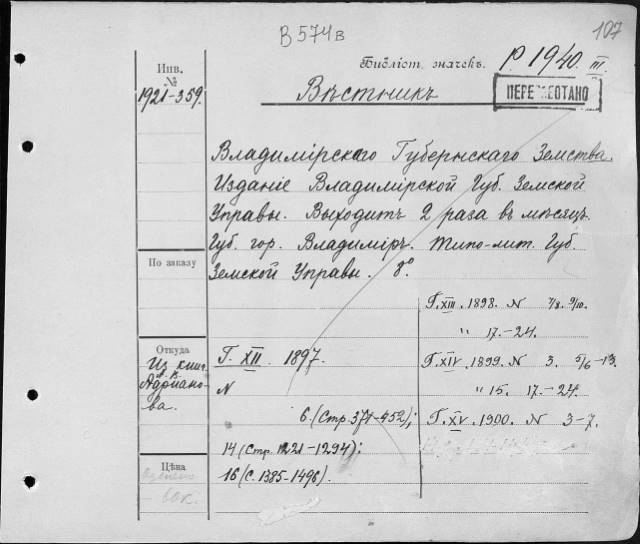 107
В 574в
Библіот. значекъ. Р 1940. III.
Инв.
№
1921-359.
Вѣстникъ
Владимірскаго Губернскаго Земства.
Изданіе Владимірской Губ. Земской
Управы. Выходитъ 2 раза въ мѣсяцъ.
Губ. гор. Владиміръ. Типо-лит. Губ.
Земской Управы. 8°.
По заказу
Откуда
Из книг
Адриано-
ва.
Цѣна
60к.
Г. XII. 1897.
N
6 (Стр. 371-452);
14 (Стр. 1221-1294);
16 (С. 1385-1496).
Г. XIII. 1898. N 7/8. 9/10.
" 17-24.
Г. XIV. 1899. N 3. 5/6-13.
" 15. 17-24.
Г. XV. 1900. N 3-7.